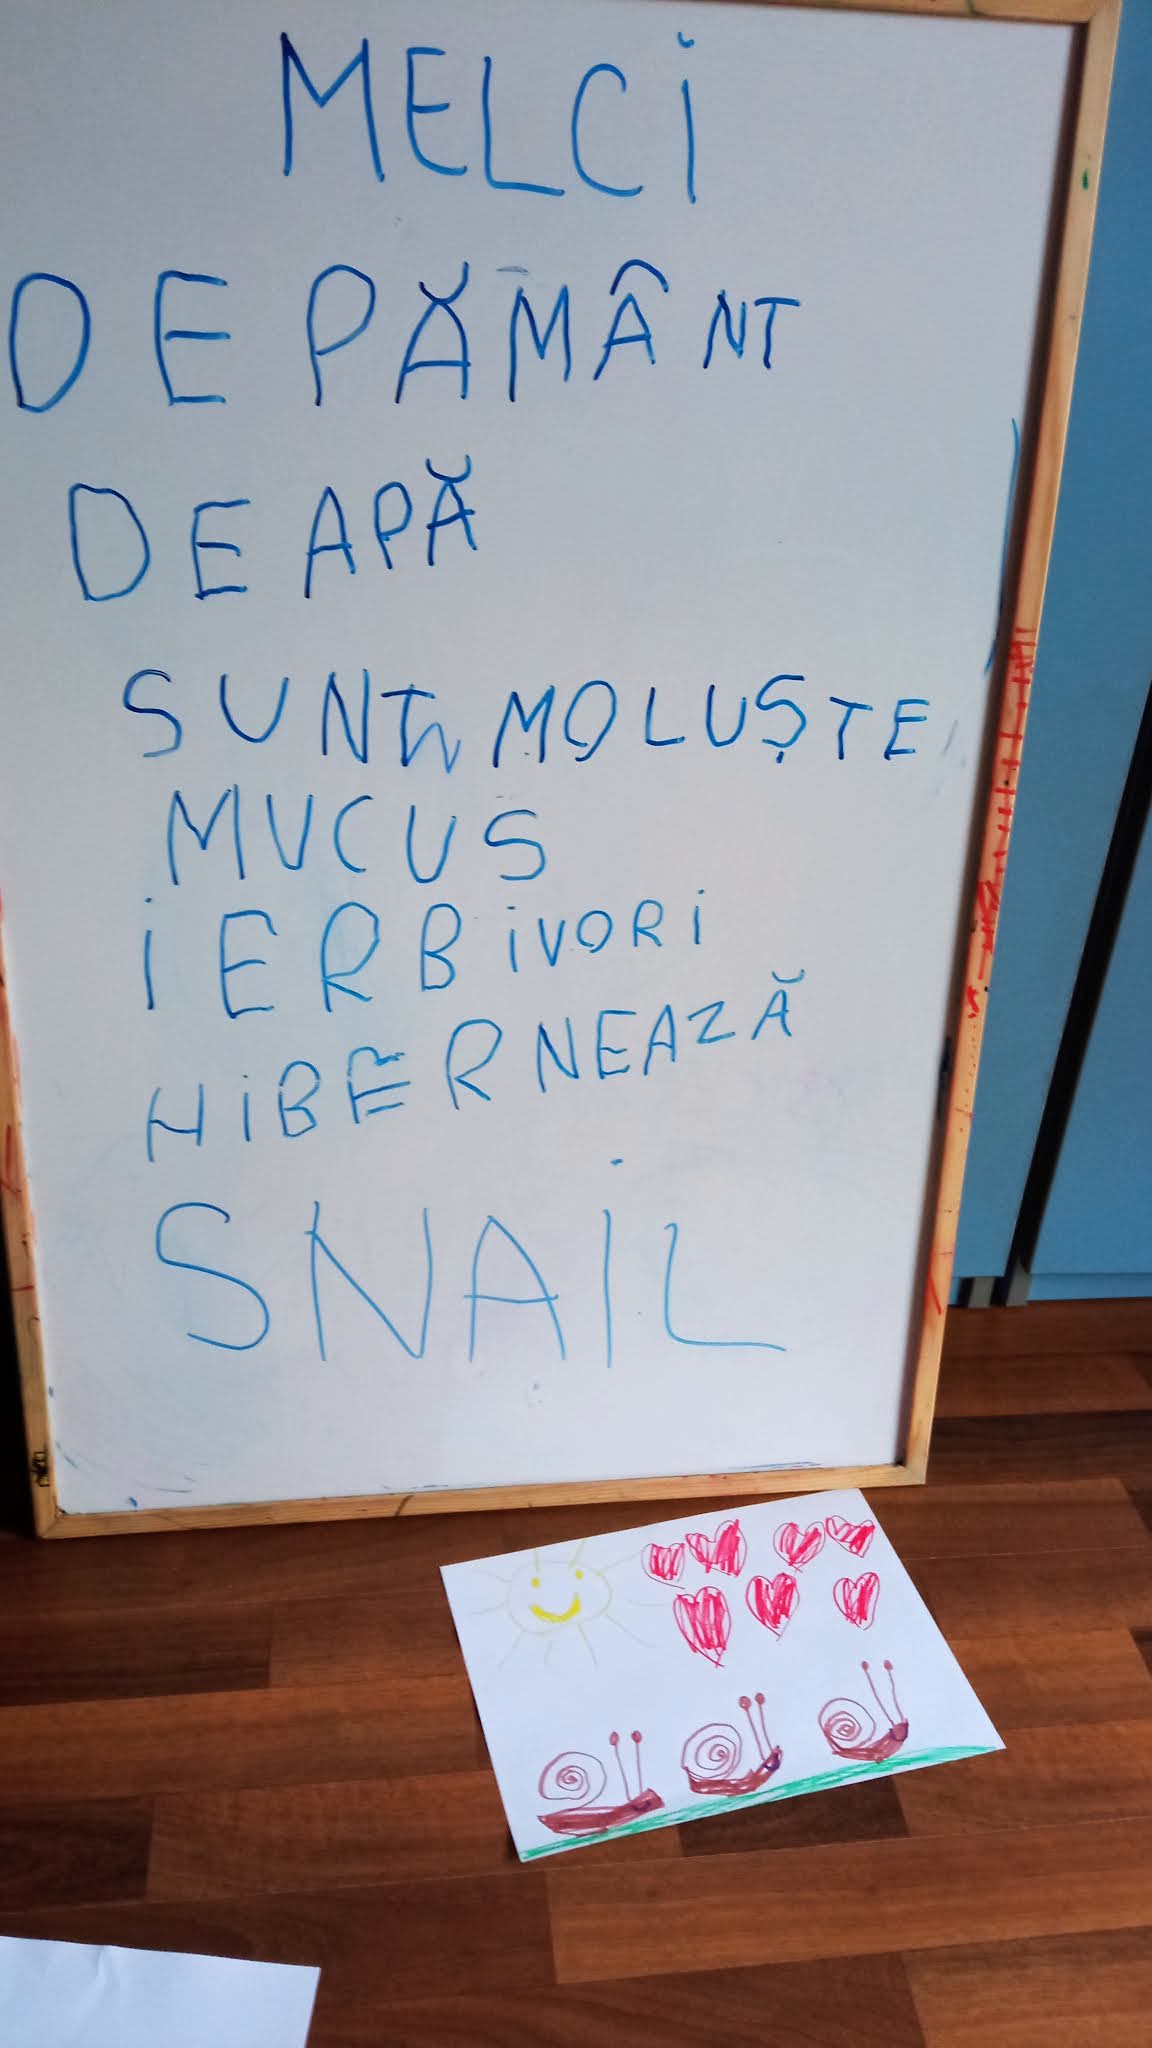 MELCI
DE PĂMÂNT
DE APĂ
SUNT MOLUȘTE
MUCUS
IERBIVORI
HIBERNEAZĂ
SNAIL